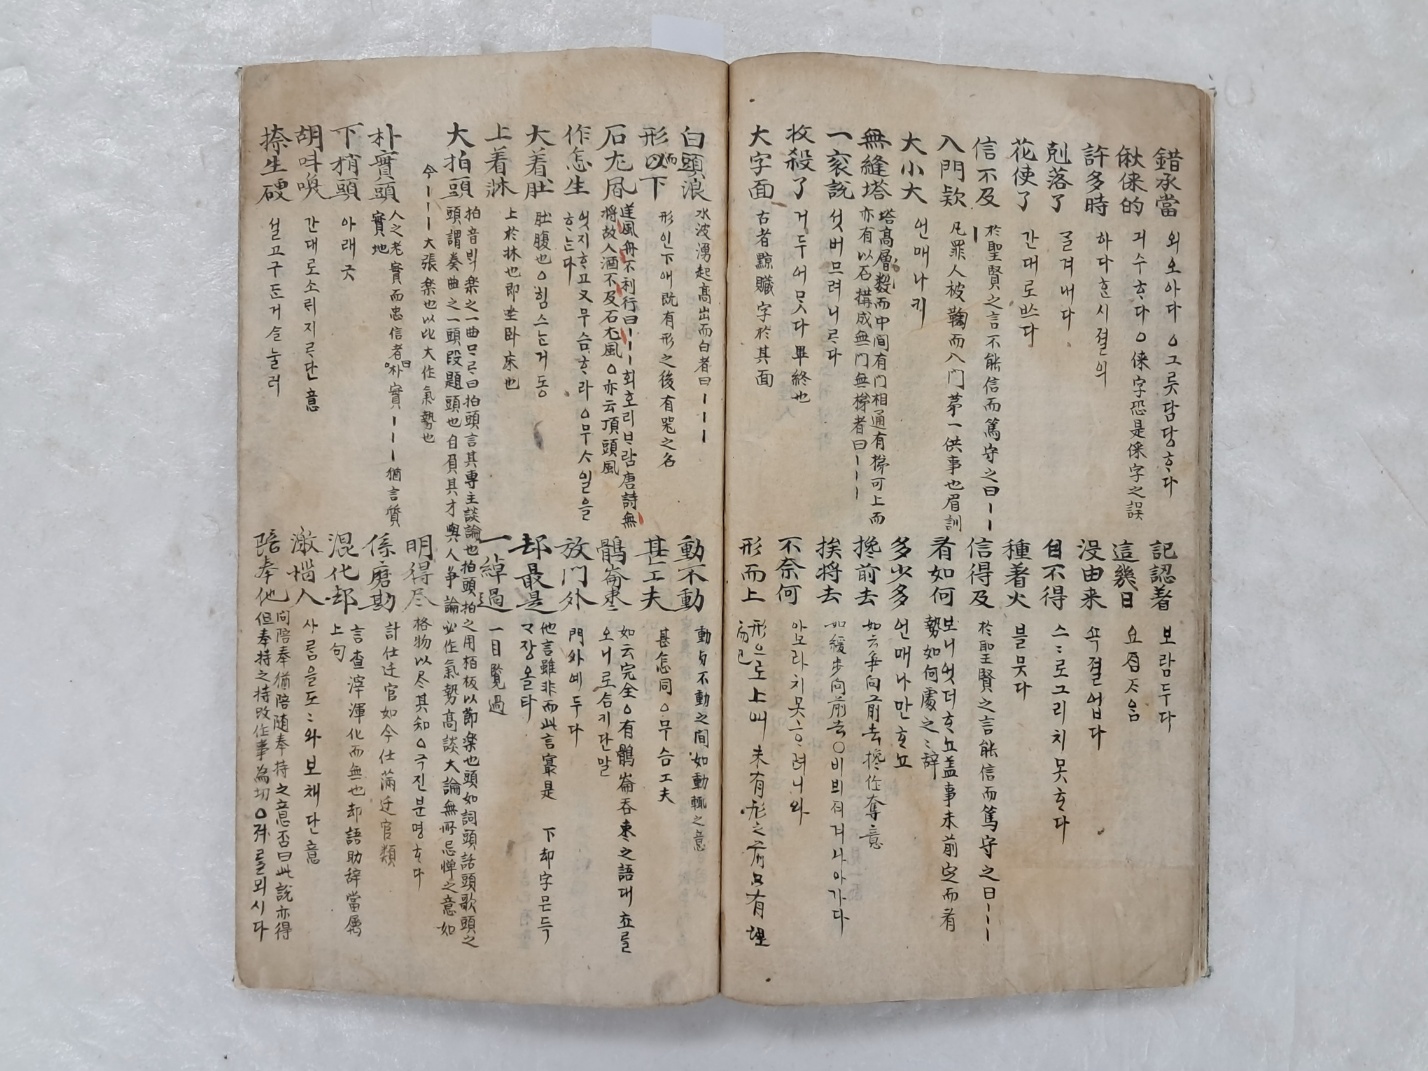 錯承當 외오아다 ○그릇담당ᄒᆞ다
俽倈的 거수ᄒᆞ다 ○倈字恐是倸字之誤
許多時 하다ᄒᆞᆫ시졀의
剋落了 골겨내다
花使了 간대로ᄡᅳ다
信不及 於聖賢之言不能信而篤守之曰ㅣㅣㅣ
入門欵 凡罪人被鞫而入門苐一供事也眉訓
大小大 언매나키
無縫塔 塔高層數而中間有門相通有梯可上而
亦有以石構成無門無梯者曰ㅣㅣㅣ
一衮說 섯버므려니ᄅᆞ다
收殺了 거두어ᄆᆞᆺ다 畢終也
大字面 古者黥贓字於其面
記認著 보람두다
這幾日 요ᄌᆞ음
没由来 쇽졀업다
自不得 스스로그리치못ᄒᆞ다
種著火 블뭇다
信得及 於聖賢之言能信而篤守之曰ㅣㅣㅣ
看如何 보니엇더ᄒᆞ뇨盖事未前定而看
勢如何處之之辞
多少多 언매나만ᄒᆞ뇨
攙前去 如云爭向前去攙作奪意
挨將去 如緩步向前去○비븨여나아가다
不奈何 아모라치못ᄒᆞ려니와
形而上 形으로上애未有形之前只有理
而已
白頭浪 水波湧起高出而白者曰ㅣㅣㅣ
形而以下 形인下애旣有形之後有㐫之名
石尤風 送風舟不利行曰ㅣㅣㅣ회호리ᄇᆞ람唐詩無
將故人酒不及石尤風○亦云頂頭風
作怎生 엇지ᄒᆞ고又무슴ᄒᆞ라○무ᄉᆞ일을
ᄒᆞᄂᆞᆫ다
大着肚 肚腹也○힘스ᄂᆞᆫ거동
上着牀 上於牀也即坐卧床也
大拍頭 拍音ᄇᆡᆨ樂之一曲ᄆᆞᄅᆞ曰拍頭言其專主談論也拍頭拍之用栢板以節楽也頭如詞頭話頭歌頭之
頭謂奏曲之一頭段題頭也自負其才與人爭論必作氣勢高談大論無所忌憚之意如
今ㅣㅣㅣ大張楽也以比大作氣勢也
朴實頭 人之老實而忠信者曰朴實ㅣㅣㅣ猶言質
實地
下稍頭 아래긋
胡呌喚 간대로소ᄅᆡ지ᄅᆞ단意
捺生硬 설고구든거슬눌러
動不動 動与不動之間如動輒之意
甚工夫 甚怎同○무슴工夫
鶻崙棗 如云完全○有鶻崙吞棗之語대쵸를
오니로ᄉᆞᆷ키단말
放門外 門外예두다
却最是 他言雖非而此言㝡是 下却字ᄆᆞᄃᆞᆨ
ᄀᆞ장올타
一綽過 一目覧過
明得尽 格物以尽其知○극진분명ᄒᆞ다
係磨勘 計仕迁官如今仕滿迁官類
混化却 言查滓渾化而無也却語助辞當属
上句
激惱人 사ᄅᆞᆷ을도도와보채단意
陪奉他 向陪奉猶陪随奉持之意否曰此說亦得
但奉持之持改作事為切○뎌를뫼시다